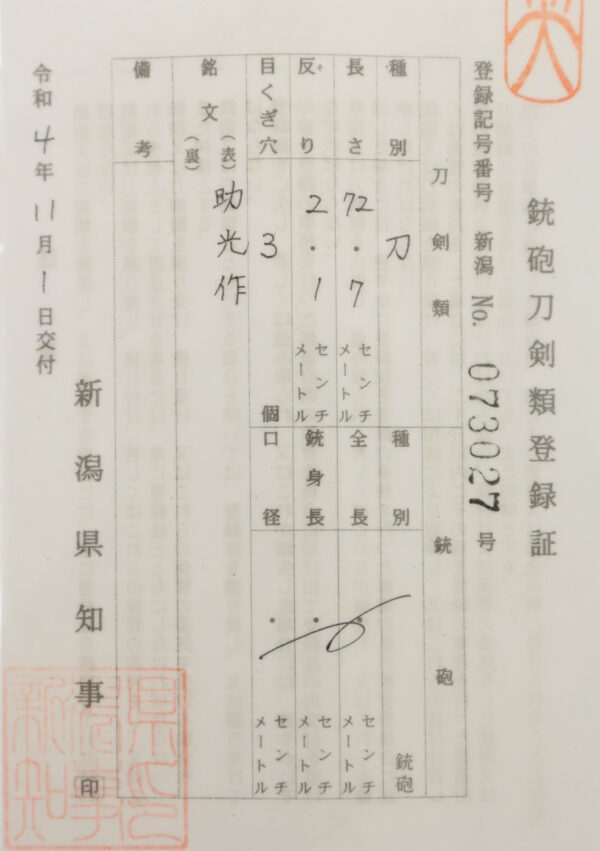 銃砲刀剣類登録証
登録記号番号 新潟 No. 073027 号
刀剣類
種別 刀
長さ 72.7 センチメートル
反り 2.1 センチメートル
目くぎ穴 3 個
銘文 (表) 助光作
(裏)
備考
銃砲
種別 銃砲
全長 . センチメートル
銃身長 . センチメートル
口径 . センチメートル
令和4年11月1日交付
新潟県知事 印
新潟県知事印